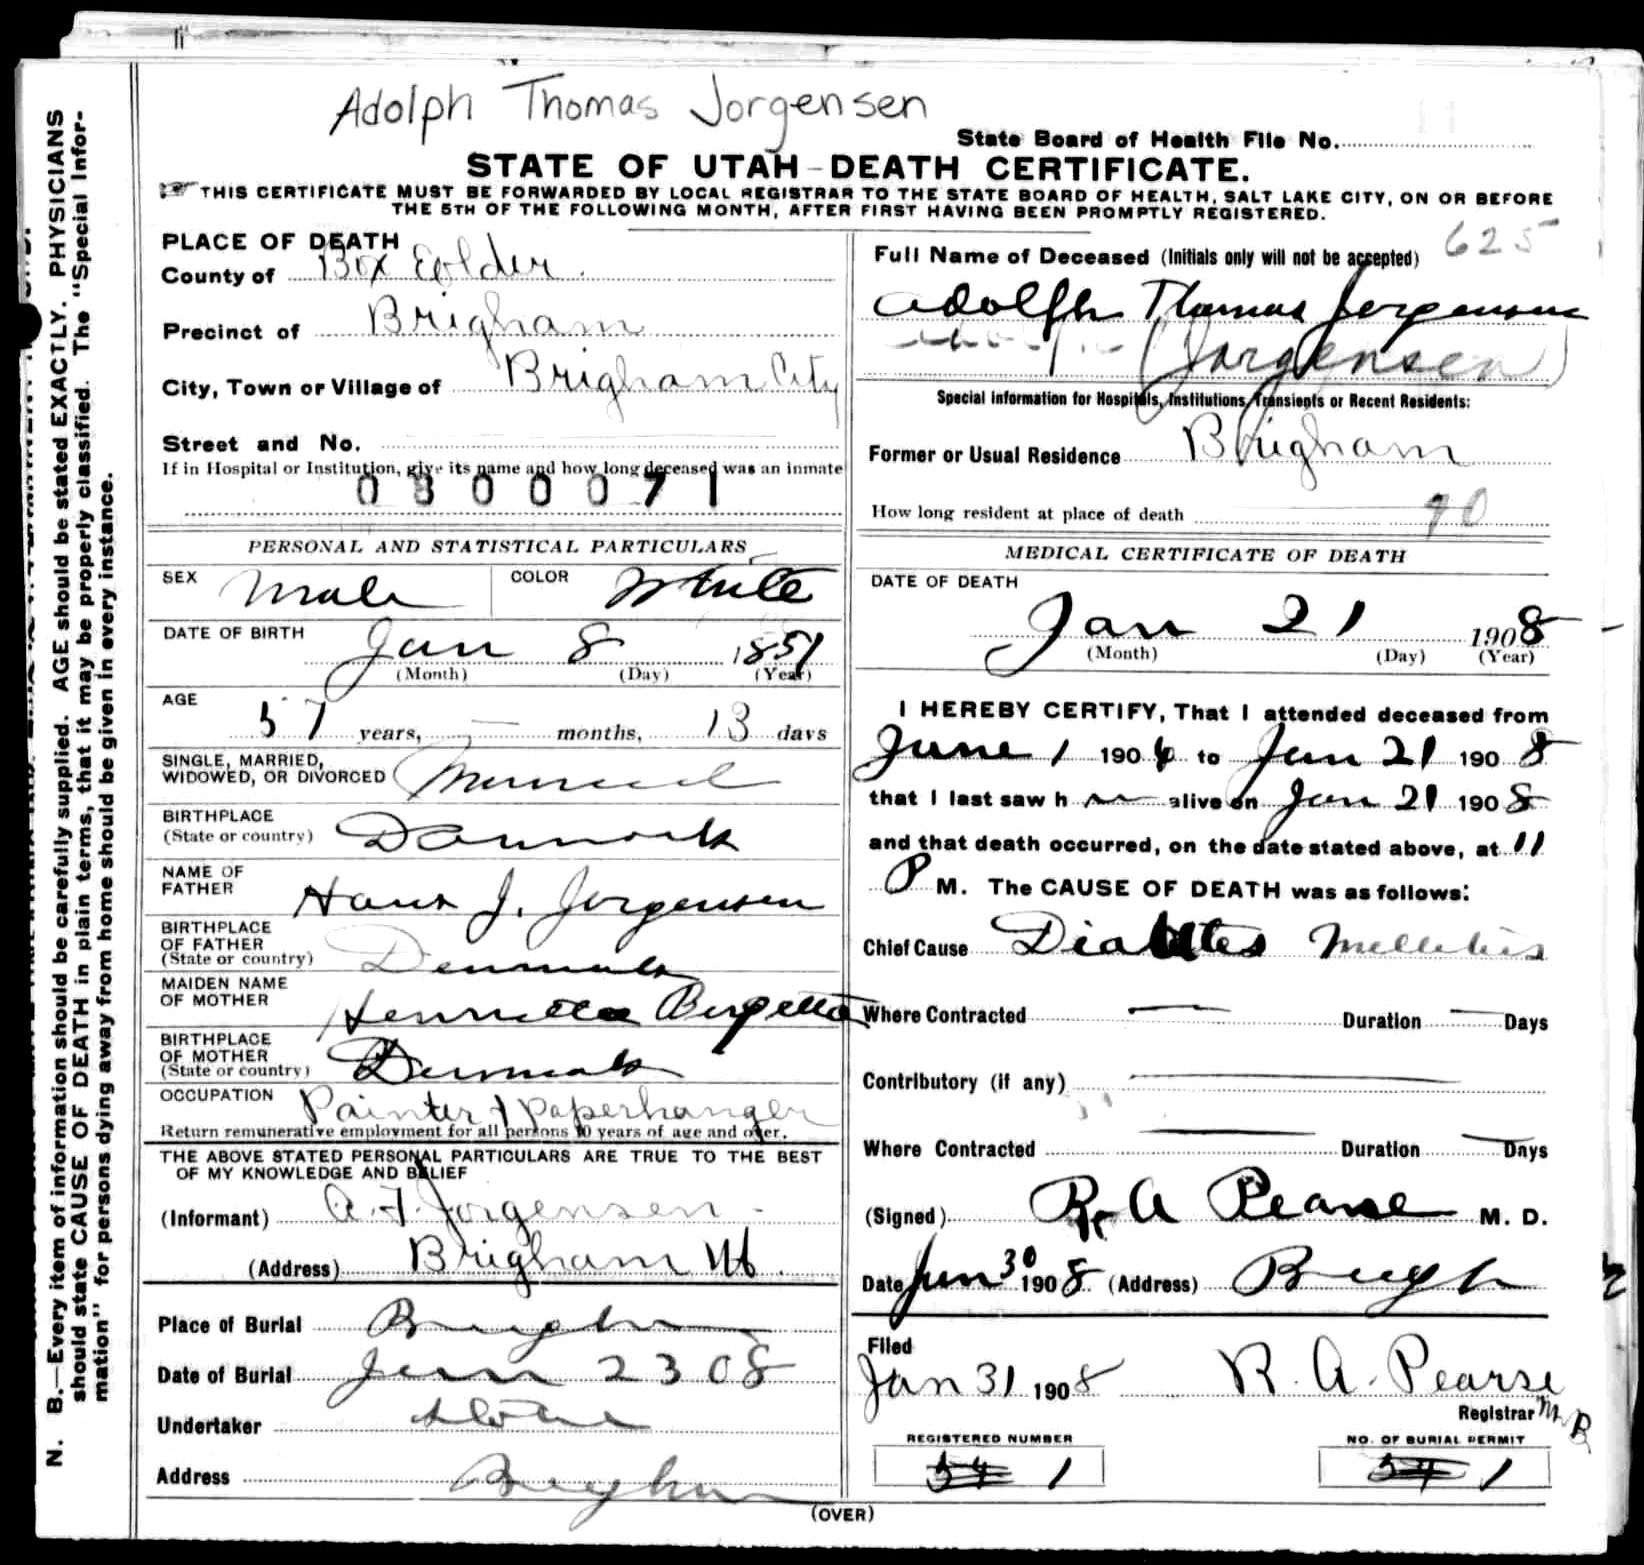 Adolph Thomas Jorgensen
State Board of Health File No.
STATE OF UTAH-DEATH CERTIFICATE.
THIS CERTIFICATE MUST BE FORWARDED BY LOCAL REGISTRAR TO THE STATE BOARD OF HEALTH, SALT LAKE CITY, ON OR BEFORE
THE 5TH OF THE FOLLOWING MONTH, AFTER FIRST HAVING BEEN PROMPTLY REGISTERED.
N. B.—Every item of information should be carefully supplied. AGE should be stated EXACTLY. PHYSICIANS
should state CAUSE OF DEATH in plain terms, that it may be properly classified. The "Special Infor-
mation" for persons dying away from home should be given in every instance.
PLACE OF DEATH
County of Box Elder
Precinct of Brigham
City, Town or Village of Brigham City
Street and No.
If in Hospital or Institution, give its name and how long deceased was an inmate
0300071
PERSONAL AND STATISTICAL PARTICULARS
SEX Male COLOR White
DATE OF BIRTH Jan 8 1851
(Month) (Day) (Year)
AGE
57 years, — months, 13 days
SINGLE, MARRIED,
WIDOWED, OR DIVORCED Married
BIRTHPLACE
(State or country) Danmark
NAME OF
FATHER Hans J. Jorgensen
BIRTHPLACE
OF FATHER
(State or country) Denmark
MAIDEN NAME
OF MOTHER Henrietta
BIRTHPLACE
OF MOTHER
(State or country) Denmark
OCCUPATION Painter & Paperhanger
Return remunerative employment for all persons 10 years of age and over.
THE ABOVE STATED PERSONAL PARTICULARS ARE TRUE TO THE BEST
OF MY KNOWLEDGE AND BELIEF
(Informant) A. T. Jorgensen
(Address) Brigham Ut.
Place of Burial Brigham
Date of Burial Jan 23 08
Undertaker
Address Brigham
625
Full Name of Deceased (Initials only will not be accepted)
Adolph Thomas Jorgensen
(Jorgensen)
Special Information for Hospitals, Institutions, Transients or Recent Residents:
Former or Usual Residence Brigham
How long resident at place of death
MEDICAL CERTIFICATE OF DEATH
DATE OF DEATH
Jan 21 1908
(Month) (Day) (Year)
I HEREBY CERTIFY, That I attended deceased from
June 1 190 to Jan 21 1908
that I last saw h alive on Jan 21 1908
and that death occurred, on the date stated above, at 11
P M. The CAUSE OF DEATH was as follows:
Chief Cause Diabetes Mellitus
Where Contracted — Duration — Days
Contributory (if any) —
Where Contracted — Duration — Days
(Signed) R. A Pearse M. D.
Date Jan 30 1908 (Address) Brigh
Filed
Jan 31 1908 R. A. Pearse
Registrar
REGISTERED NUMBER NO. OF BURIAL PERMIT
54 1 54 1
(OVER)